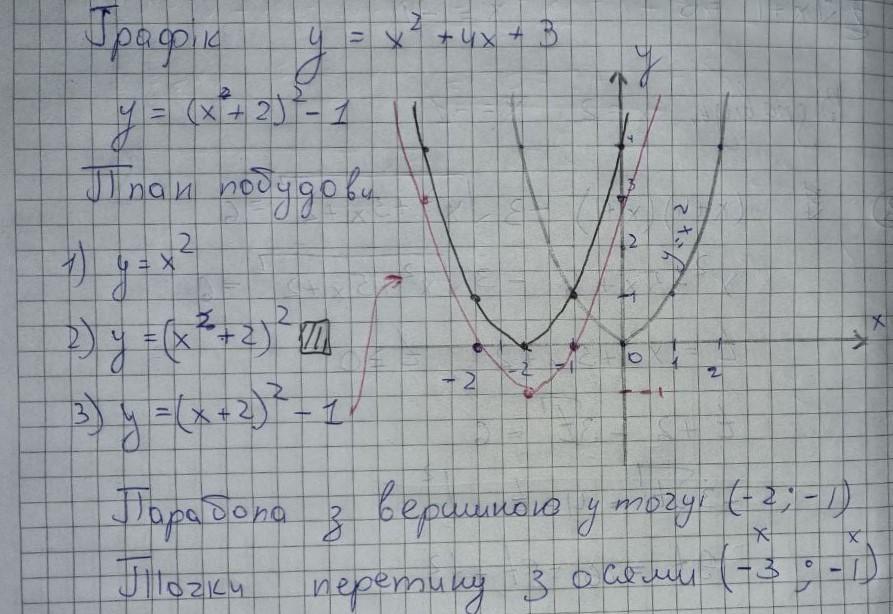 Графік y = x² + 4x + 3
y = (x² + 2)² - 1
План побудови
1) y = x²
2) y = (x² + 2)²
3) y = (x + 2)² - 1
y
4
3
2
1
y = x²
x
-2 -2 -1 0 1 2
-1
Парабола з вершиною у точці (-2 ; -1)
x x
Точки перетину з осями (-3 ; -1)